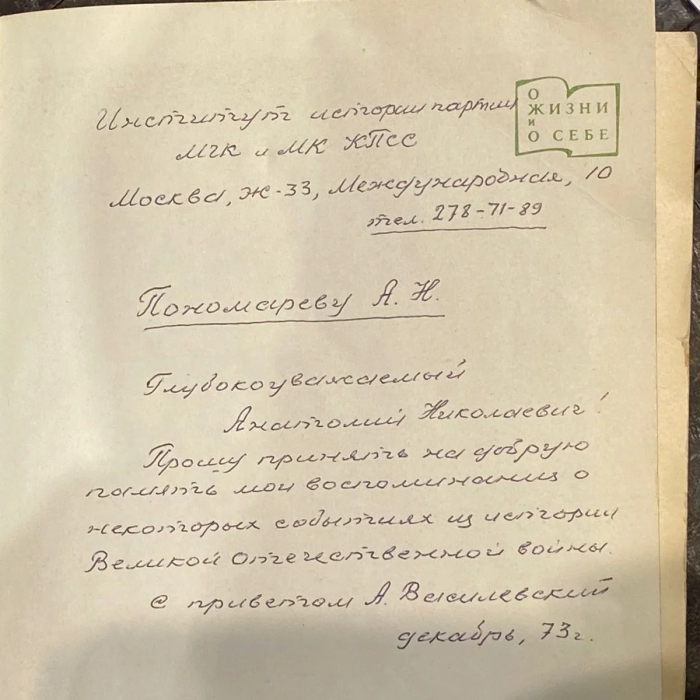 О
ЖИЗНИ
И
О СЕБЕ
Институт истории партии
МГК и МК КПСС
Москва, Ж-33, Международная, 10
тел. 278-71-89
Пономареву А. Н.
Глубокоуважаемый
Анатолий Николаевич!
Прошу принять на добрую
память мои воспоминания о
некоторых событиях из истории
Великой Отечественной войны.
С приветом А. Василевский
декабрь, 73 г.